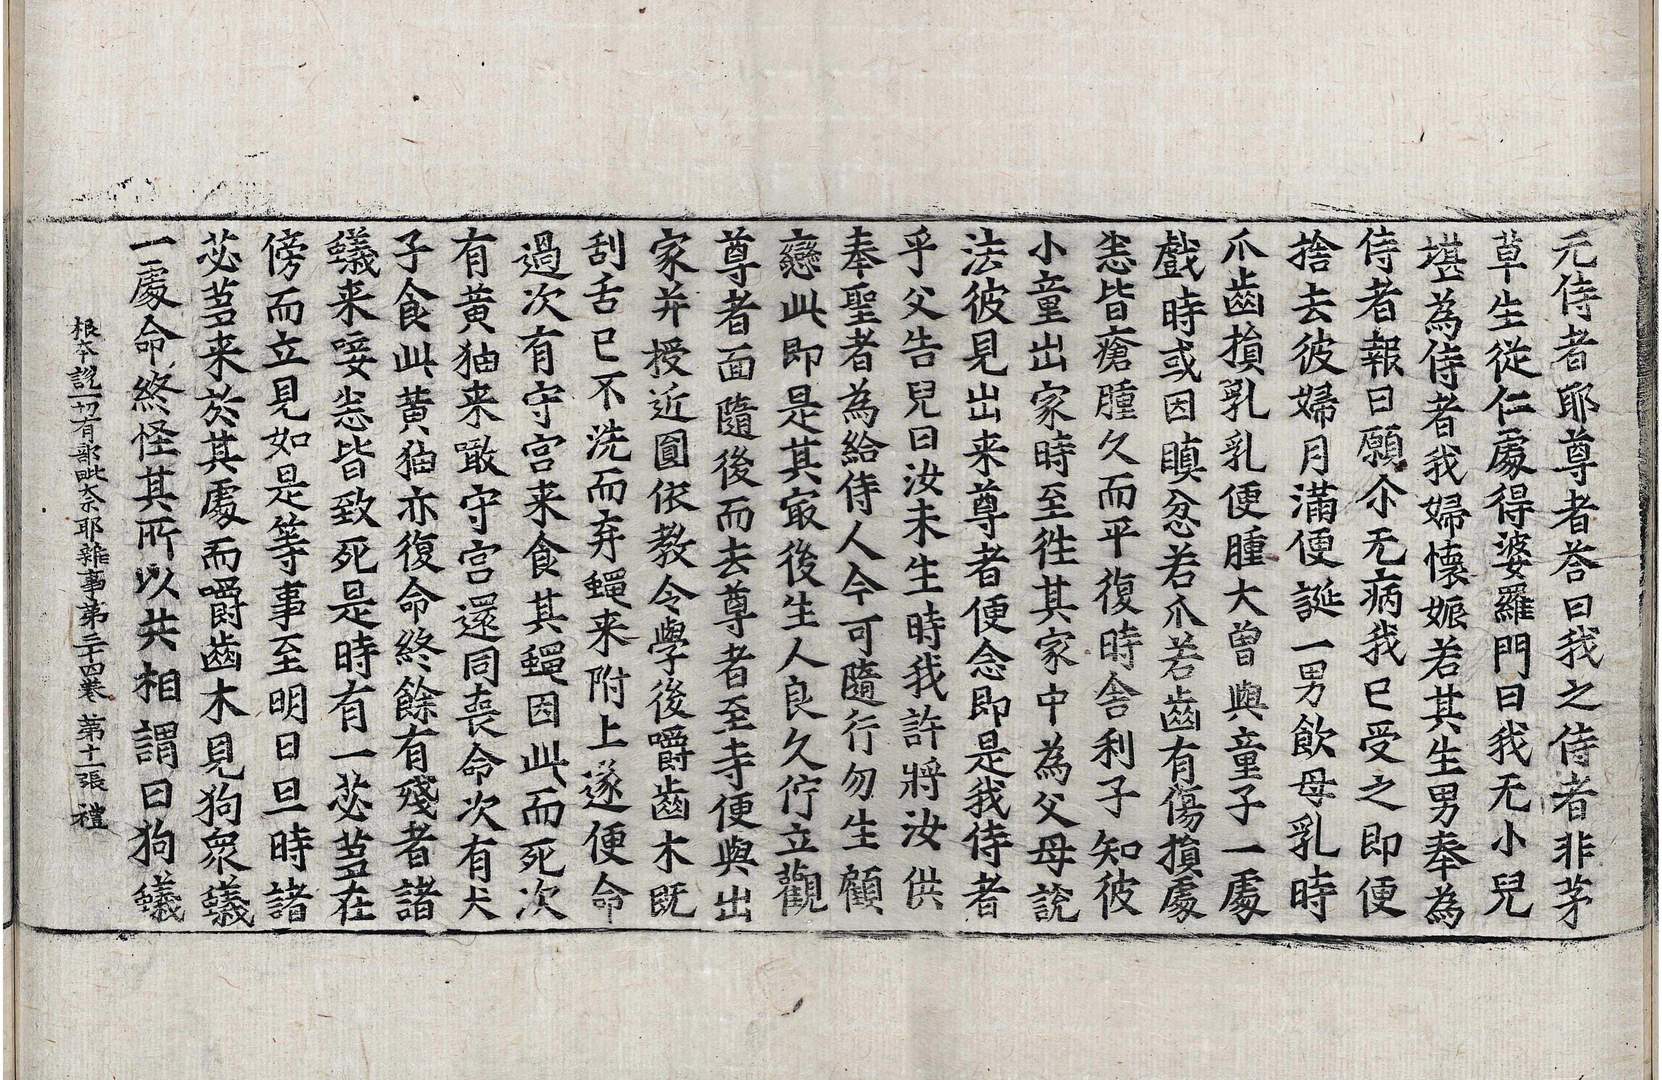 无侍者耶尊者荅曰我之侍者非茅
草生從仁處得婆羅門曰我无小兒
堪為侍者我婦懷娠若其生男奉為
侍者報曰願尒无病我已受之即便
捨去彼婦月滿便誕一男飲母乳時
爪齒損乳乳便腫大曾與童子一處
戲時或因瞋忿若爪若齒有傷損處
悉皆瘡腫久而平復時舍利子知彼
小童出家時至往其家中為父母說
法彼見出来尊者便念即是我侍者
乎父告兒曰汝未生時我許將汝供
奉聖者為給侍人今可隨行勿生顧
戀此即是其冣後生人良久佇立觀
尊者面隨後而去尊者至寺便與出
家并授近圓依教令學後嚼齒木既
刮舌已不洗而弃蠅来附上遂便命
過次有守宮来食其蠅因此而死次
有黃㹨来噉守宮還同喪命次有犬
子食此黃㹨亦復命終餘有殘者諸
蟻来唼悉皆致死是時有一苾蒭在
傍而立見如是等事至明日旦時諸
苾蒭来於其處而嚼齒木見狗衆蟻
一處命終怪其所以共相謂曰狗蟻
根本說一切有部毗奈耶雜事第三十四卷 第十一張 禮